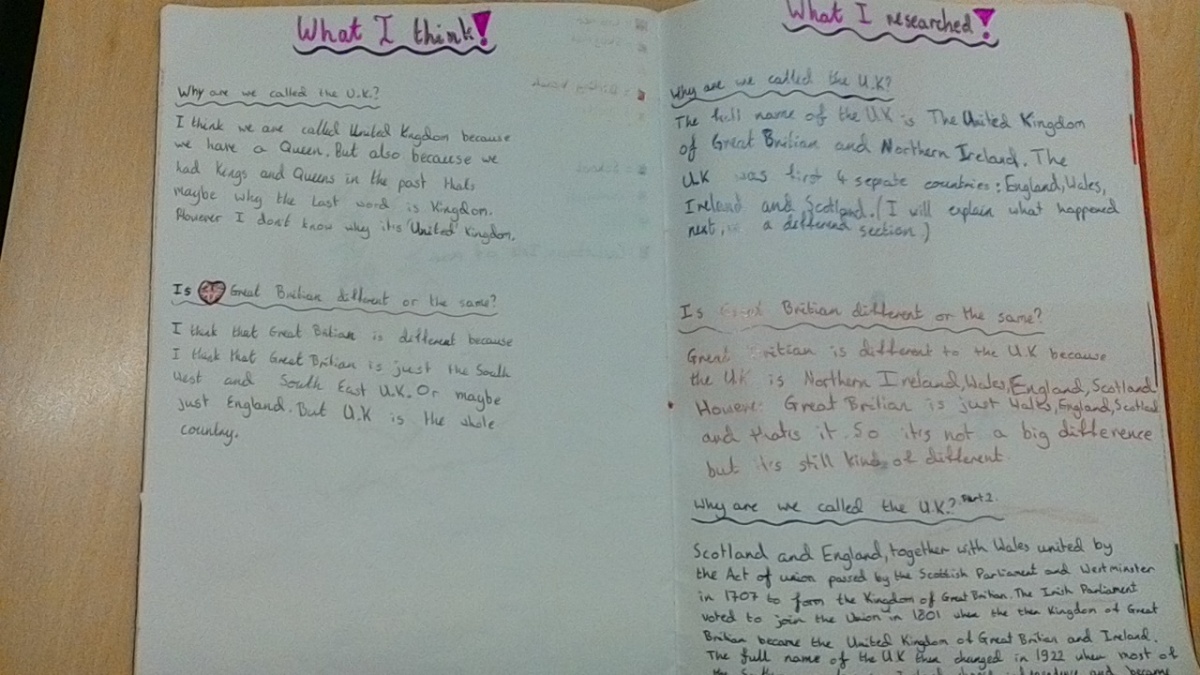 What I think!
Why are we called the U.K.?
I think we are called United Kngdom because
we have a Queen. But also because we
had Kings and Queens in the past thats
maybe why the last word is Kingdom.
However I don't know why it's 'United' Kingdom.
Is Great Britian different or the same?
I think that Great Britian is different because
I think that Great Britian is just the South
West and South East U.K. Or maybe
just England. But U.K is the whole
country.
What I researched!
Why are we called the U.K?
The full name of the UK is The United Kingdom
of Great Britian and Northern Ireland. The
UK was first 4 seprate countries: England, Wales,
Ireland and Scotland. (I will explain what happened
next, a different section.)
Is Great Britian different or the same?
Great Britian is different to the UK because
the UK is Northern Ireland, Wales, England, Scotland
However Great Britian is just Wales, England, Scotland
and thats it. So it's not a big difference
but it's still kind of different.
Why are we called the U.K.? Part 2.
Scotland and England, together with Wales united by
the Act of union passed by the Scottish Parliament and Westminster
in 1707 to form the Kingdom of Great Britian. The Irish Parliament
voted to join the Union in 1801 when the then Kingdom of Great
Britian became the United Kingdom of Great Britian and Ireland.
The full name of the UK then changed in 1922 when most of
independence and became